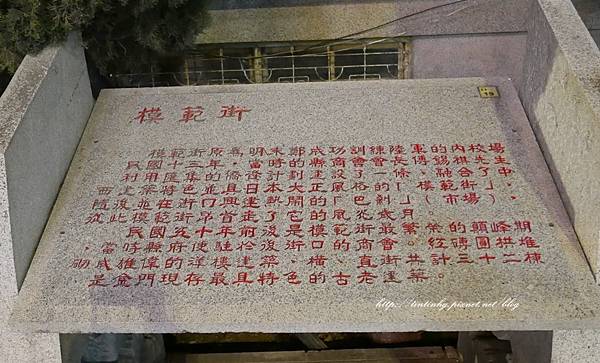 模範街
模範街原為明末鄭成功訓練陸軍的內校場
民國十三年，當時的縣商會會長傅錫祺先生
利用匯集的僑匯計劃建設了一條、融合了中
西建築特色並具日本大正風格的「模範街」，
隨後並在街口興建熱鬧的「巴剎」（市場），
從此模範街昂首走了它的風光歲月。
民國五十年前後是模範街最繁榮的顛峰期
，當時縣府便駐於後街口的商會。紅磚圓拱堆
砌成雄偉的洋樓建築，橫、直街共計三十二棟
是金門現存最具特色的古老建築。
http://tintinhg.pixnet.net/blog